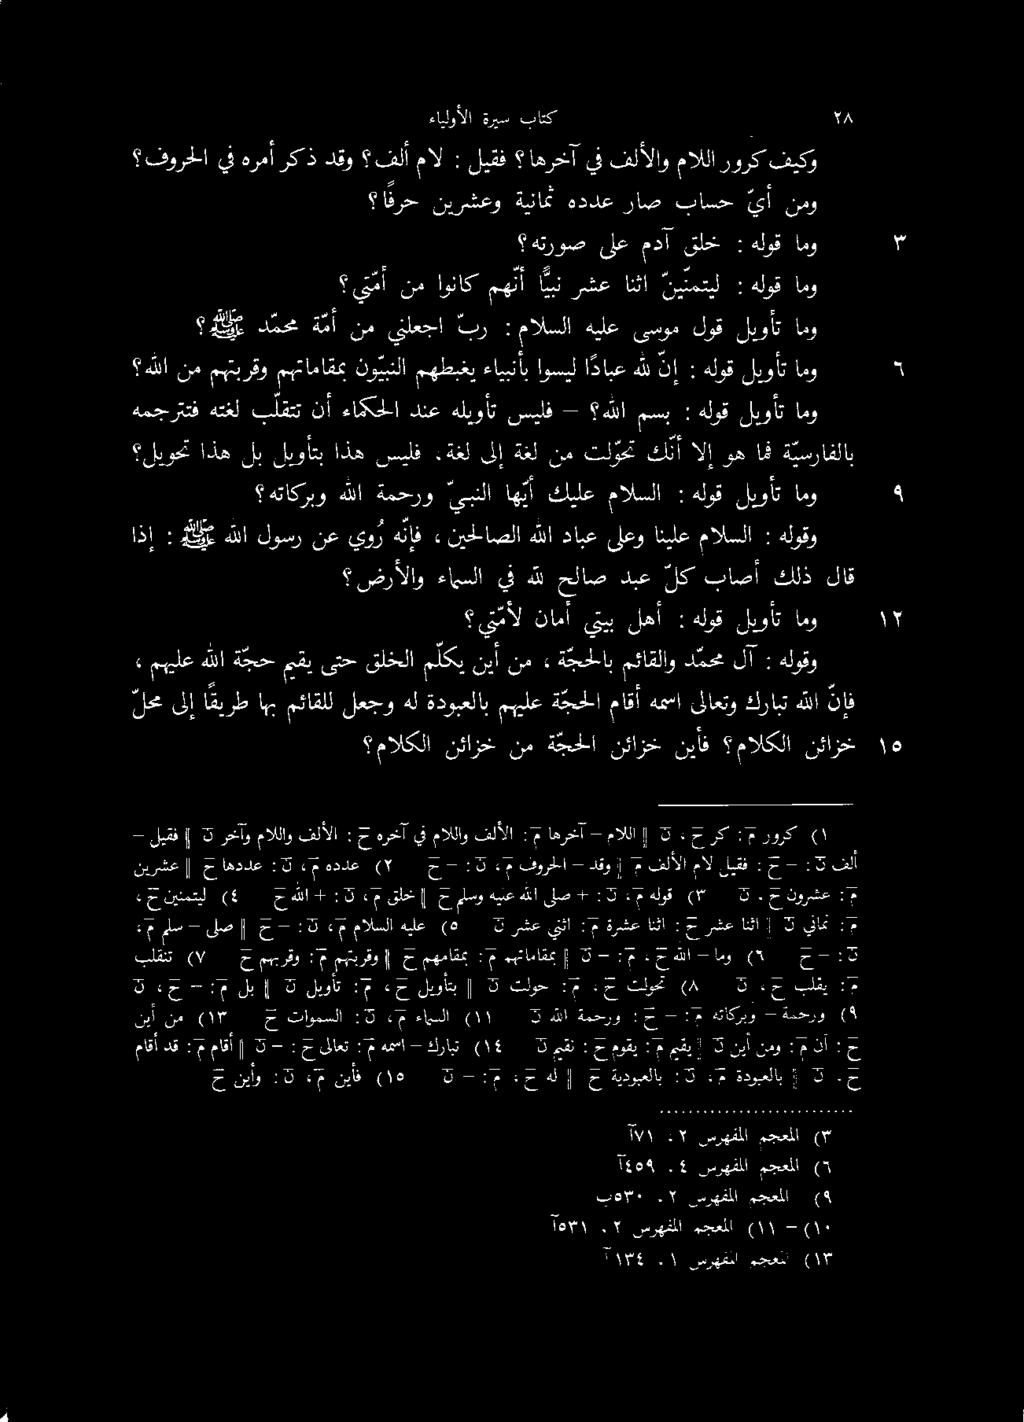 ٢٨ كتاب سيرة الأولياء
وكيف كرور اللام والألف في آخرها؟ فقيل : لام ألف؟ وقد ذكر أمره في الحروف؟
ومن أيّ حساب صار عدده ثمانية وعشرين حرفًا؟
٣ وما قوله : خلق آدم على صورته؟
وما قوله : ليتمنّينّ اثنا عشر نبيًّا أنّهم كانوا من أمّتي؟
وما تأويل قول موسى عليه السلام : ربّ اجعلني من أمّة محمّد ﷺ؟
٦ وما تأويل قوله : إنّ لله عبادًا ليسوا بأنبياء يغبطهم النبيّون بمقاماتهم وقربتهم من الله؟
وما تأويل قوله : بسم الله؟ – فليس تأويله عند الحكماء أن تتقلّب لغته فتترجمه
بالفارسيّة فما هو إلا أنّك تحوّلت من لغة إلى لغة، فليس هذا بتأويل بل هذا تحويل؟
٩ وما تأويل قوله : السلام عليك أيّها النبيّ ورحمة الله وبركاته؟
وقوله : السلام علينا وعلى عباد الله الصالحين، فإنّه رُوي عن رسول الله ﷺ : إذا
قال ذلك أصاب كلّ عبد صالح لله في السماء والأرض؟
١٢ وما تأويل قوله : أهل بيتي أمان لأمّتي؟
وقوله : آل محمّد والقائم بالحجّة، من أين يكلّم الخلق حتى يقيم حجّة الله عليهم،
فإنّ الله تبارك وتعالى اسمه أقام الحجّة عليهم بالعبودة له وجعل للقائم بها طريقًا إلى محلّ
١٥ خزائن الكلام؟ فأين خزائن الحجّة من خزائن الكلام؟
١) كرور م̄: كر ح̄، ن̄ ‖ اللام – آخرها م̄: الألف واللام في آخره ح̄: الألف واللام وآخر ن̄ ‖ فقيل –
ألف ن̄: – ح̄: فقيل لام الألف م̄ ‖ وقد – الحروف م̄، ن̄: – ح̄ ٢) عدده م̄، ن̄: عددها ح̄ ‖ عشرين
م̄: عشرون ح̄، ن̄ ٣) قوله م̄، ن̄: + صلى الله عليه وسلم ح̄ ‖ خلق م̄، ن̄: + الله ح̄ ٤) ليتمنين ح̄،
م̄: ثماني ن̄ ‖ اثنا عشر ح̄: اثنا عشرة م̄: اثني عشر ن̄ ٥) عليه السلام م̄، ن̄: – ح̄ ‖ صلى – سلم م̄،
ن̄: – ح̄ ٦) وما – الله ح̄، م̄: – ن̄ ‖ بمقاماتهم م̄: بمقامهم ح̄ ‖ وقربتهم م̄: وقربهم ح̄ ٧) تتقلب
م̄: يقلب ح̄، ن̄ ٨) تحولت ح̄، م̄: حولت ن̄ ‖ بتأويل ح̄، م̄: تأويل ن̄ ‖ بل م̄: – ح̄، ن̄
٩) ورحمة – وبركاته م̄: – ح̄: ورحمة الله ن̄ ١١) السماء م̄، ن̄: السموات ح̄ ١٣) من أين
ح̄: أن م̄: ومن أين ن̄ ‖ يقيم م̄: يقوم ح̄: نقيم ن̄ ١٤) تبارك – اسمه م̄: تعالى ح̄: – ن̄ ‖ أقام م̄: قد أقام
ح̄، ن̄ ‖ بالعبودة م̄، ن̄: بالعبودية ح̄ ‖ له ح̄، م̄: – ن̄ ١٥) فأين م̄، ن̄: وأين ح̄
٣) المعجم المفهرس ٢، ٧١آ
٦) المعجم المفهرس ٤، ٤٥٩آ
٩) المعجم المفهرس ٢، ٥٣٠ب
١٠) – ١١) المعجم المفهرس ٢، ٥٣١آ
١٣) المعجم المفهرس ١، ١٣٤آ